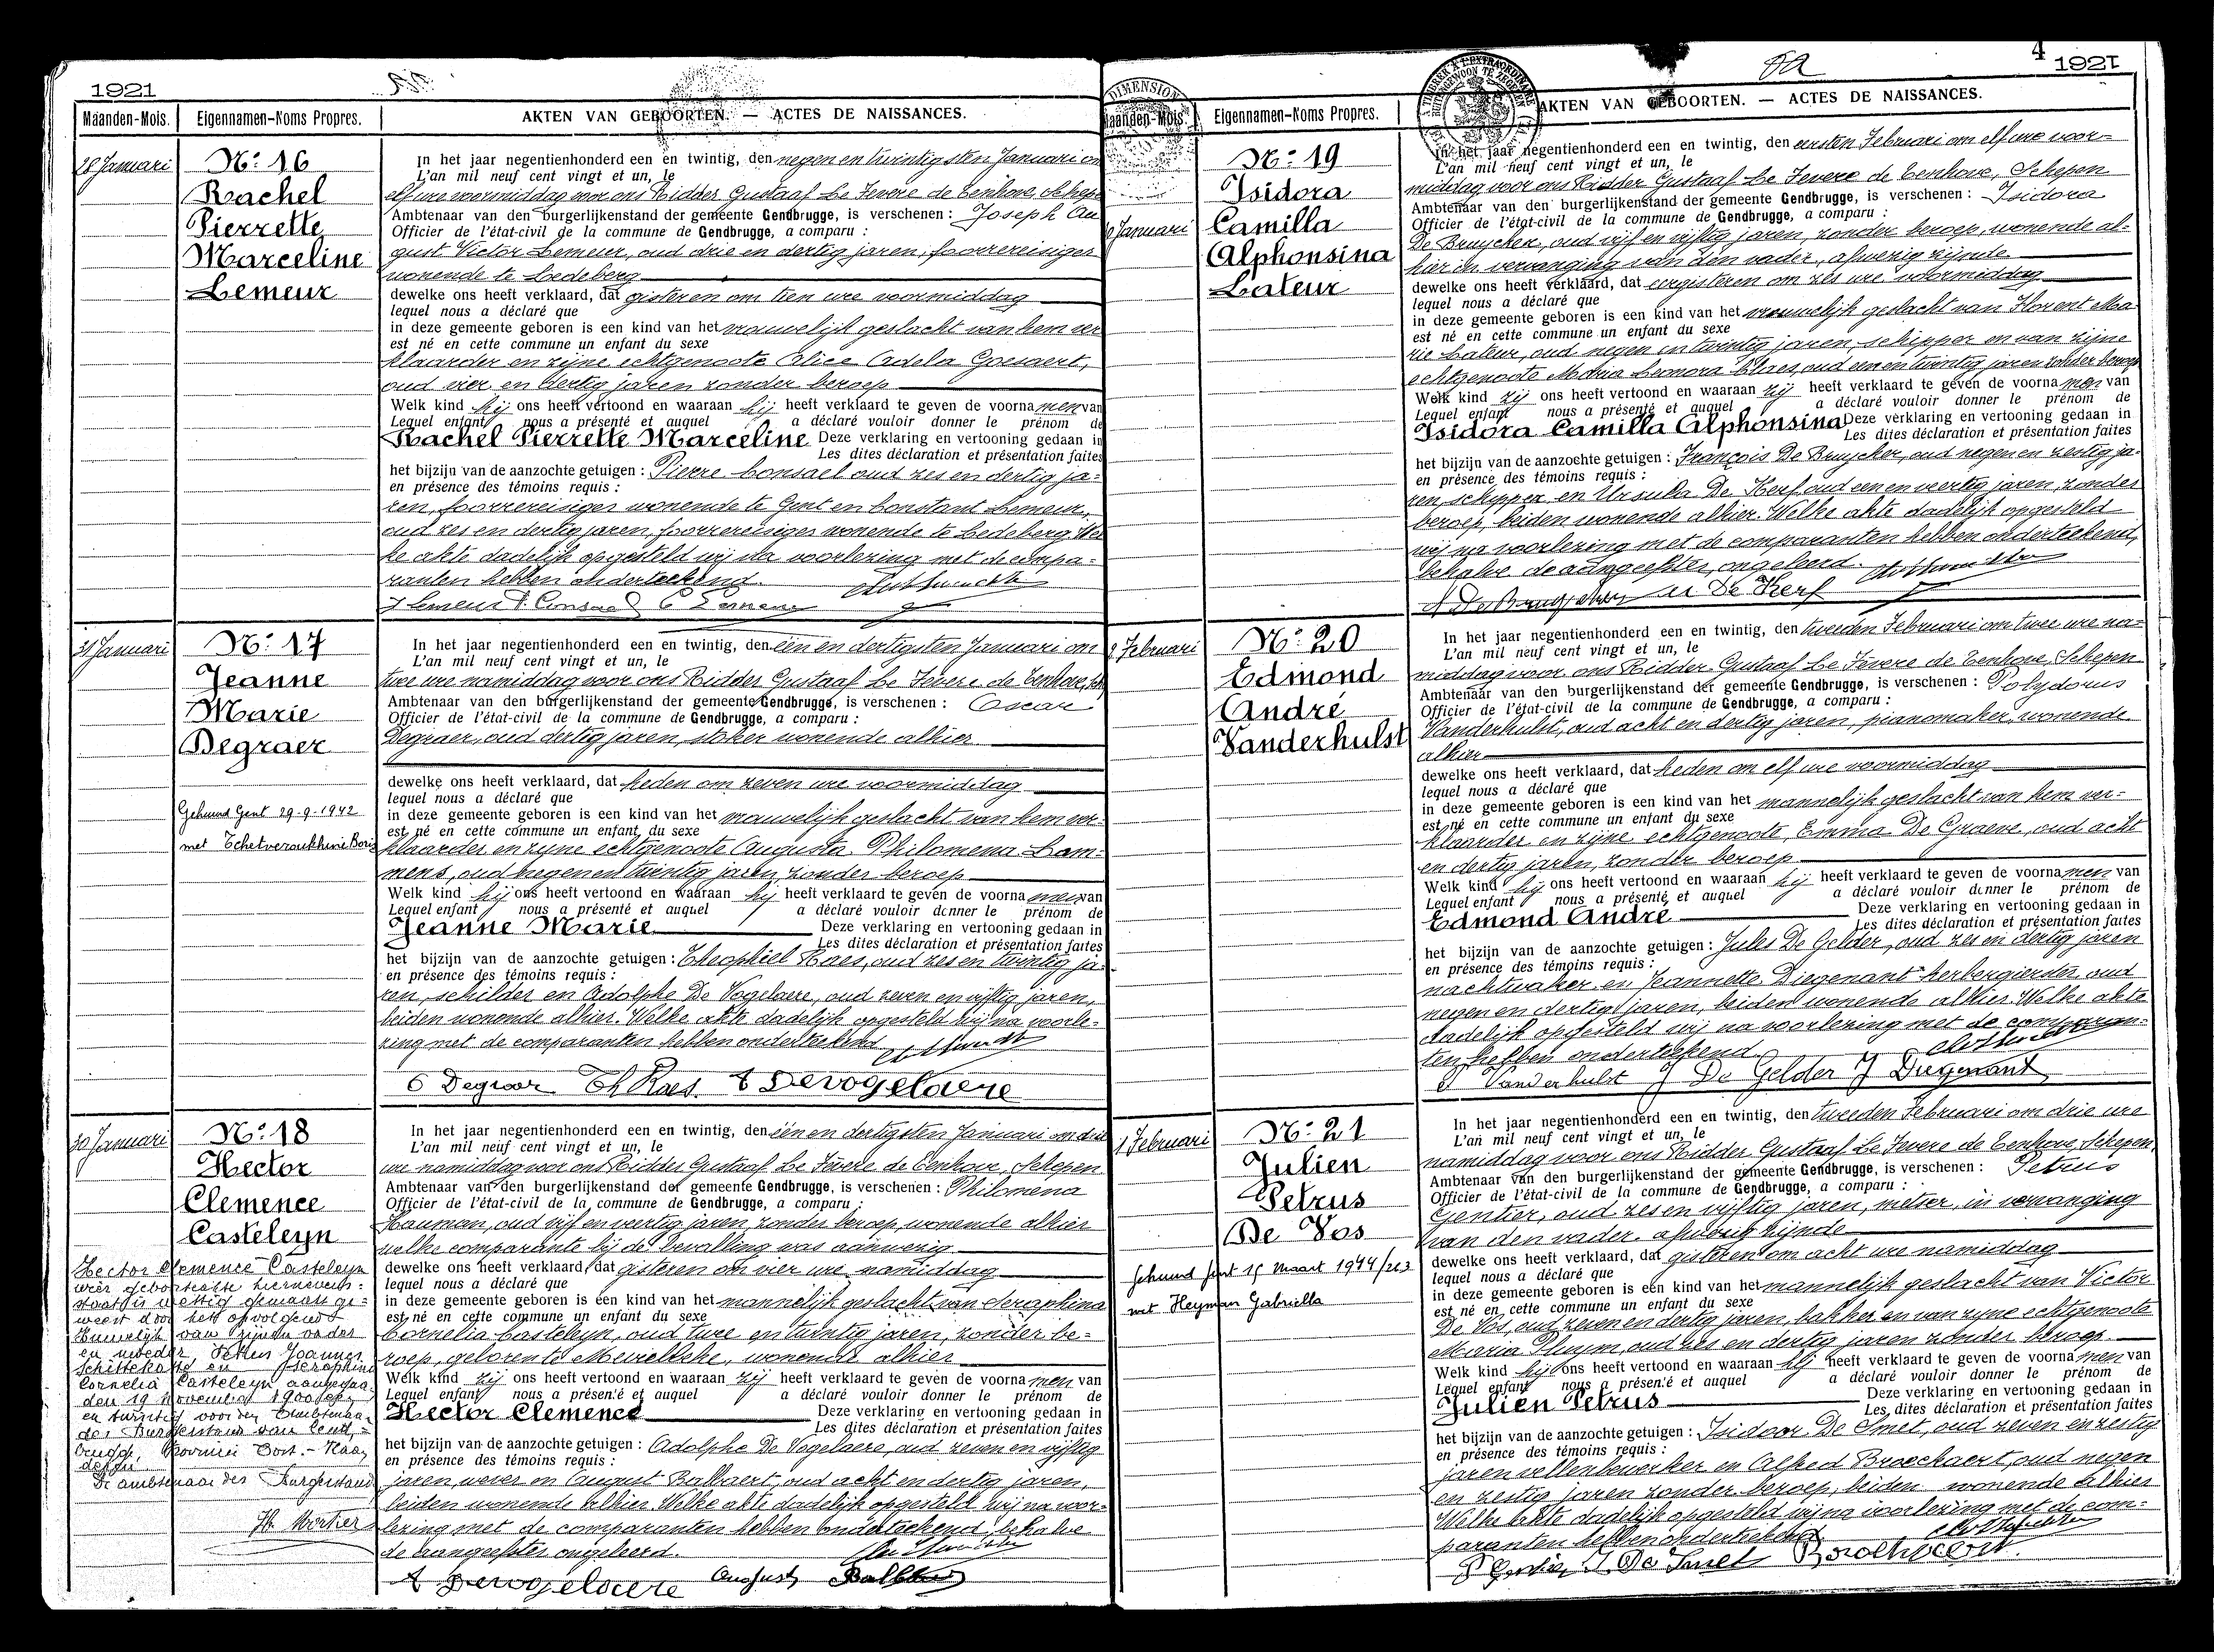 1921
Maanden-Mois. Eigennamen-Noms Propres. AKTEN VAN GEBOORTEN. — ACTES DE NAISSANCES.
28 Januari
No: 16
Rachel
Pierrette
Marceline
Lemeur
In het jaar negentienhonderd een en twintig, den negen en twintigsten Januari om
L'an mil neuf cent vingt et un, le
elf ure voormiddag voor ons Ridder Gustaaf Le Fevere de Tenhove, Schepen
Ambtenaar van den burgerlijkenstand der gemeente Gendbrugge, is verschenen : Joseph Au
Officier de l'état-civil de la commune de Gendbrugge, a comparu :
gust Victor Lemeur, oud drie en dertig jaren, foorrereiziger
wonende te Ledeberg
dewelke ons heeft verklaard, dat gisteren om tien ure voormiddag
lequel nous a déclaré que
in deze gemeente geboren is een kind van het vrouwelijk geslacht van hem ver
est né en cette commune un enfant du sexe
klaarder en zijne echtgenoote Alice Adela Goessaert,
oud vier en dertig jaren zonder beroep
Welk kind hij ons heeft vertoond en waaraan hij heeft verklaard te geven de voornamen van
Lequel enfant nous a présenté et auquel a déclaré vouloir donner le prénom de
Rachel Pierrette Marceline Deze verklaring en vertooning gedaan in
Les dites déclaration et présentation faites
het bijzijn van de aanzochte getuigen : Pierre Consael oud zes en dertig ja=
en présence des témoins requis :
ren, foorrereiziger wonende te Gent en Constant Lemeur,
oud zes en dertig jaren, foorrereiziger wonende te Ledeberg. Wel
ke akte dadelijk opgesteld wij na voorlezing met de compa=
ranten hebben onderteekend.
J Lemeur P. Consael C Lemeur
31 Januari
No: 17
Jeanne
Marie
Degraer
Gehuwd Gent 29-9-1942
met Tchetveroukhine Boris
In het jaar negentienhonderd een en twintig, den één en dertigsten Januari om
L'an mil neuf cent vingt et un, le
twee ure namiddag voor ons Ridder Gustaaf Le Fevere de Tenhove, Sch
Ambtenaar van den burgerlijkenstand der gemeente Gendbrugge, is verschenen : Oscar
Officier de l'état-civil de la commune de Gendbrugge, a comparu :
Degraer, oud dertig jaren, stoker wonende alhier
dewelke ons heeft verklaard, dat heden om zeven ure voormiddag
lequel nous a déclaré que
in deze gemeente geboren is een kind van het vrouwelijk geslacht van hem ver=
est né en cette commune un enfant du sexe
klaarder en zijne echtgenoote Augusta Philomena Lam=
mens, oud negen en twintig jaren, zonder beroep
Welk kind hij ons heeft vertoond en waaraan hij heeft verklaard te geven de voornamen van
Lequel enfant nous a présenté et auquel a déclaré vouloir donner le prénom de
Jeanne Marie Deze verklaring en vertooning gedaan in
Les dites déclaration et présentation faites
het bijzijn van de aanzochte getuigen : Theophiel Raes, oud zes en twintig ja=
en présence des témoins requis :
ren, schilder en Adolphe De Vogelaere, oud zeven en vijftig jaren,
beiden wonende alhier. Welke akte dadelijk opgesteld wij na voorle=
zing met de comparanten hebben onderteekend
O Degraer Th Raes. A Devogelaere
30 Januari
No: 18
Hector
Clemence
Casteleyn
Hector Clemence Casteleyn
wier geboorteakte hiernevens=
staat is wettig gemaakt ge=
weest door het opvolgend
Huwelijk van zijnen vader
en moeder Petrus Joannes
Schittekatte en Seraphina
Cornelia Casteleyn aangegaa
den 19 November 1900 een
en twintig voor den Ambtenaa
der Burgerstand van Gent=
brugge, Provincie Oost.- Vlaan
deren.
De ambtenaar der Burgerstand
H. Mortier
In het jaar negentienhonderd een en twintig, den één en dertigsten Januari om drie
L'an mil neuf cent vingt et un, le
ure namiddag voor ons Ridder Gustaaf Le Fevere de Tenhove, Schepen
Ambtenaar van den burgerlijkenstand der gemeente Gendbrugge, is verschenen : Philomena
Officier de l'état-civil de la commune de Gendbrugge, a comparu :
Hauman, oud vijf en veertig jaren, zonder beroep, wonende alhier
welke comparante bij de bevalling was aanwezig
dewelke ons heeft verklaard, dat gisteren om vier ure namiddag
lequel nous a déclaré que
in deze gemeente geboren is een kind van het mannelijk geslacht van Seraphina
est né en cette commune un enfant du sexe
Cornelia Casteleyn, oud twee en twintig jaren, zonder be=
roep, geboren te Meirelbeke, wonende alhier
Welk kind zij ons heeft vertoond en waaraan zij heeft verklaard te geven de voornamen van
Lequel enfant nous a présenté et auquel a déclaré vouloir donner le prénom de
Hector Clemence Deze verklaring en vertooning gedaan in
Les dites déclaration et présentation faites
het bijzijn van de aanzochte getuigen : Adolphe De Vogelaere, oud zeven en vijftig
en présence des témoins requis :
jaren, wever en August Balbaert, oud acht en dertig jaren,
beiden wonende alhier. Welke akte dadelijk opgesteld wij na voor=
lezing met de comparanten hebben onderteekend, behalve
de aangeefster ongeleerd.
A Devogelaere August
4 1921
Maanden-Mois. Eigennamen-Noms Propres. AKTEN VAN GEBOORTEN. — ACTES DE NAISSANCES.
Januari
No: 19
Isidora
Camilla
Alphonsina
Lateur
In het jaar negentienhonderd een en twintig, den eersten Februari om elf ure voor=
L'an mil neuf cent vingt et un, le
middag voor ons Ridder Gustaaf Le Fevere de Tenhove, Schepen
Ambtenaar van den burgerlijkenstand der gemeente Gendbrugge, is verschenen : Isidora
Officier de l'état-civil de la commune de Gendbrugge, a comparu :
De Bruycker, oud vijf en vijftig jaren, zonder beroep, wonende al=
hier in vervanging van den vader, afwezig zijnde
dewelke ons heeft verklaard, dat eergisteren om zes ure voormiddag
lequel nous a déclaré que
in deze gemeente geboren is een kind van het vrouwelijk geslacht van Florent Ma
est né en cette commune un enfant du sexe
rie Lateur, oud negen en twintig jaren, schipper en van zijne
echtgenoote Maria Leonora Claes, oud een en twintig jaren zonder beroep
Welk kind zij ons heeft vertoond en waaraan zij heeft verklaard te geven de voornamen van
Lequel enfant nous a présenté et auquel a déclaré vouloir donner le prénom de
Isidora Camilla Alphonsina Deze verklaring en vertooning gedaan in
Les dites déclaration et présentation faites
het bijzijn van de aanzochte getuigen : François De Bruycker, oud negen en zestig ja=
en présence des témoins requis :
ren, schipper en Ursula De Kerf, oud een en veertig jaren, zonder
beroep, beiden wonende alhier. Welke akte dadelijk opgesteld
wij na voorlezing met de comparanten hebben onderteekend,
behalve de aangeefster, ongeleerd.
U De Kerf
2 Februari
No: 20
Edmond
André
Vanderhulst
In het jaar negentienhonderd een en twintig, den tweeden Februari om twee ure na=
L'an mil neuf cent vingt et un, le
middag voor ons Ridder Gustaaf Le Fevere de Tenhove, Schepen
Ambtenaar van den burgerlijkenstand der gemeente Gendbrugge, is verschenen : Polydorus
Officier de l'état-civil de la commune de Gendbrugge, a comparu :
Vanderhulst, oud acht en dertig jaren, pianomaker, wonende
alhier
dewelke ons heeft verklaard, dat heden om elf ure voormiddag
lequel nous a déclaré que
in deze gemeente geboren is een kind van het mannelijk geslacht van hem ver=
est né en cette commune un enfant du sexe
klaarder en zijne echtgenoote, Emma De Graeve, oud acht
en dertig jaren, zonder beroep
Welk kind hij ons heeft vertoond en waaraan hij heeft verklaard te geven de voornamen van
Lequel enfant nous a présenté et auquel a déclaré vouloir donner le prénom de
Edmond André Deze verklaring en vertooning gedaan in
Les dites déclaration et présentation faites
het bijzijn van de aanzochte getuigen : Jules De Gelder, oud zes en dertig jaren
en présence des témoins requis :
nachtwaker en Jeannette Diegenant herbergierster oud
negen en dertig jaren, beiden wonende alhier. Welke akte
dadelijk opgesteld wij na voorlezing met de comparan=
ten hebben onderteekend.
P Vanderhulst J De Gelder J Diegenant
1 Februari
No: 21
Julien
Petrus
De Vos
Gehuwd Gent 15 Maart 1944/263
met Heyman Gabriella
In het jaar negentienhonderd een en twintig, den tweeden Februari om drie ure
L'an mil neuf cent vingt et un, le
namiddag voor ons Ridder Gustaaf Le Fevere de Tenhove, Schepen,
Ambtenaar van den burgerlijkenstand der gemeente Gendbrugge, is verschenen : Petrus
Officier de l'état-civil de la commune de Gendbrugge, a comparu :
Gentier, oud zes en vijftig jaren, metser, in vervanging
van den vader, afwezig zijnde
dewelke ons heeft verklaard, dat gisteren om acht ure namiddag
lequel nous a déclaré que
in deze gemeente geboren is een kind van het mannelijk geslacht van Victor
est né en cette commune un enfant du sexe
De Vos, oud zeven en dertig jaren, bakker en van zijne echtgenoote
Maria Pluym, oud zes en dertig jaren zonder beroep
Welk kind hij ons heeft vertoond en waaraan hij heeft verklaard te geven de voornamen van
Lequel enfant nous a présenté et auquel a déclaré vouloir donner le prénom de
Julien Petrus Deze verklaring en vertooning gedaan in
Les dites déclaration et présentation faites
het bijzijn van de aanzochte getuigen : Isidoor De Smet, oud zeven en zestig
en présence des témoins requis :
jaren vellenbewerker en Alfred Broeckaert, oud negen
en zestig jaren zonder beroep, beiden wonende alhier
Welke akte dadelijk opgesteld wij na voorlezing met de com=
paranten hebben onderteekend
P Gentier I. De Smet Broeckaert